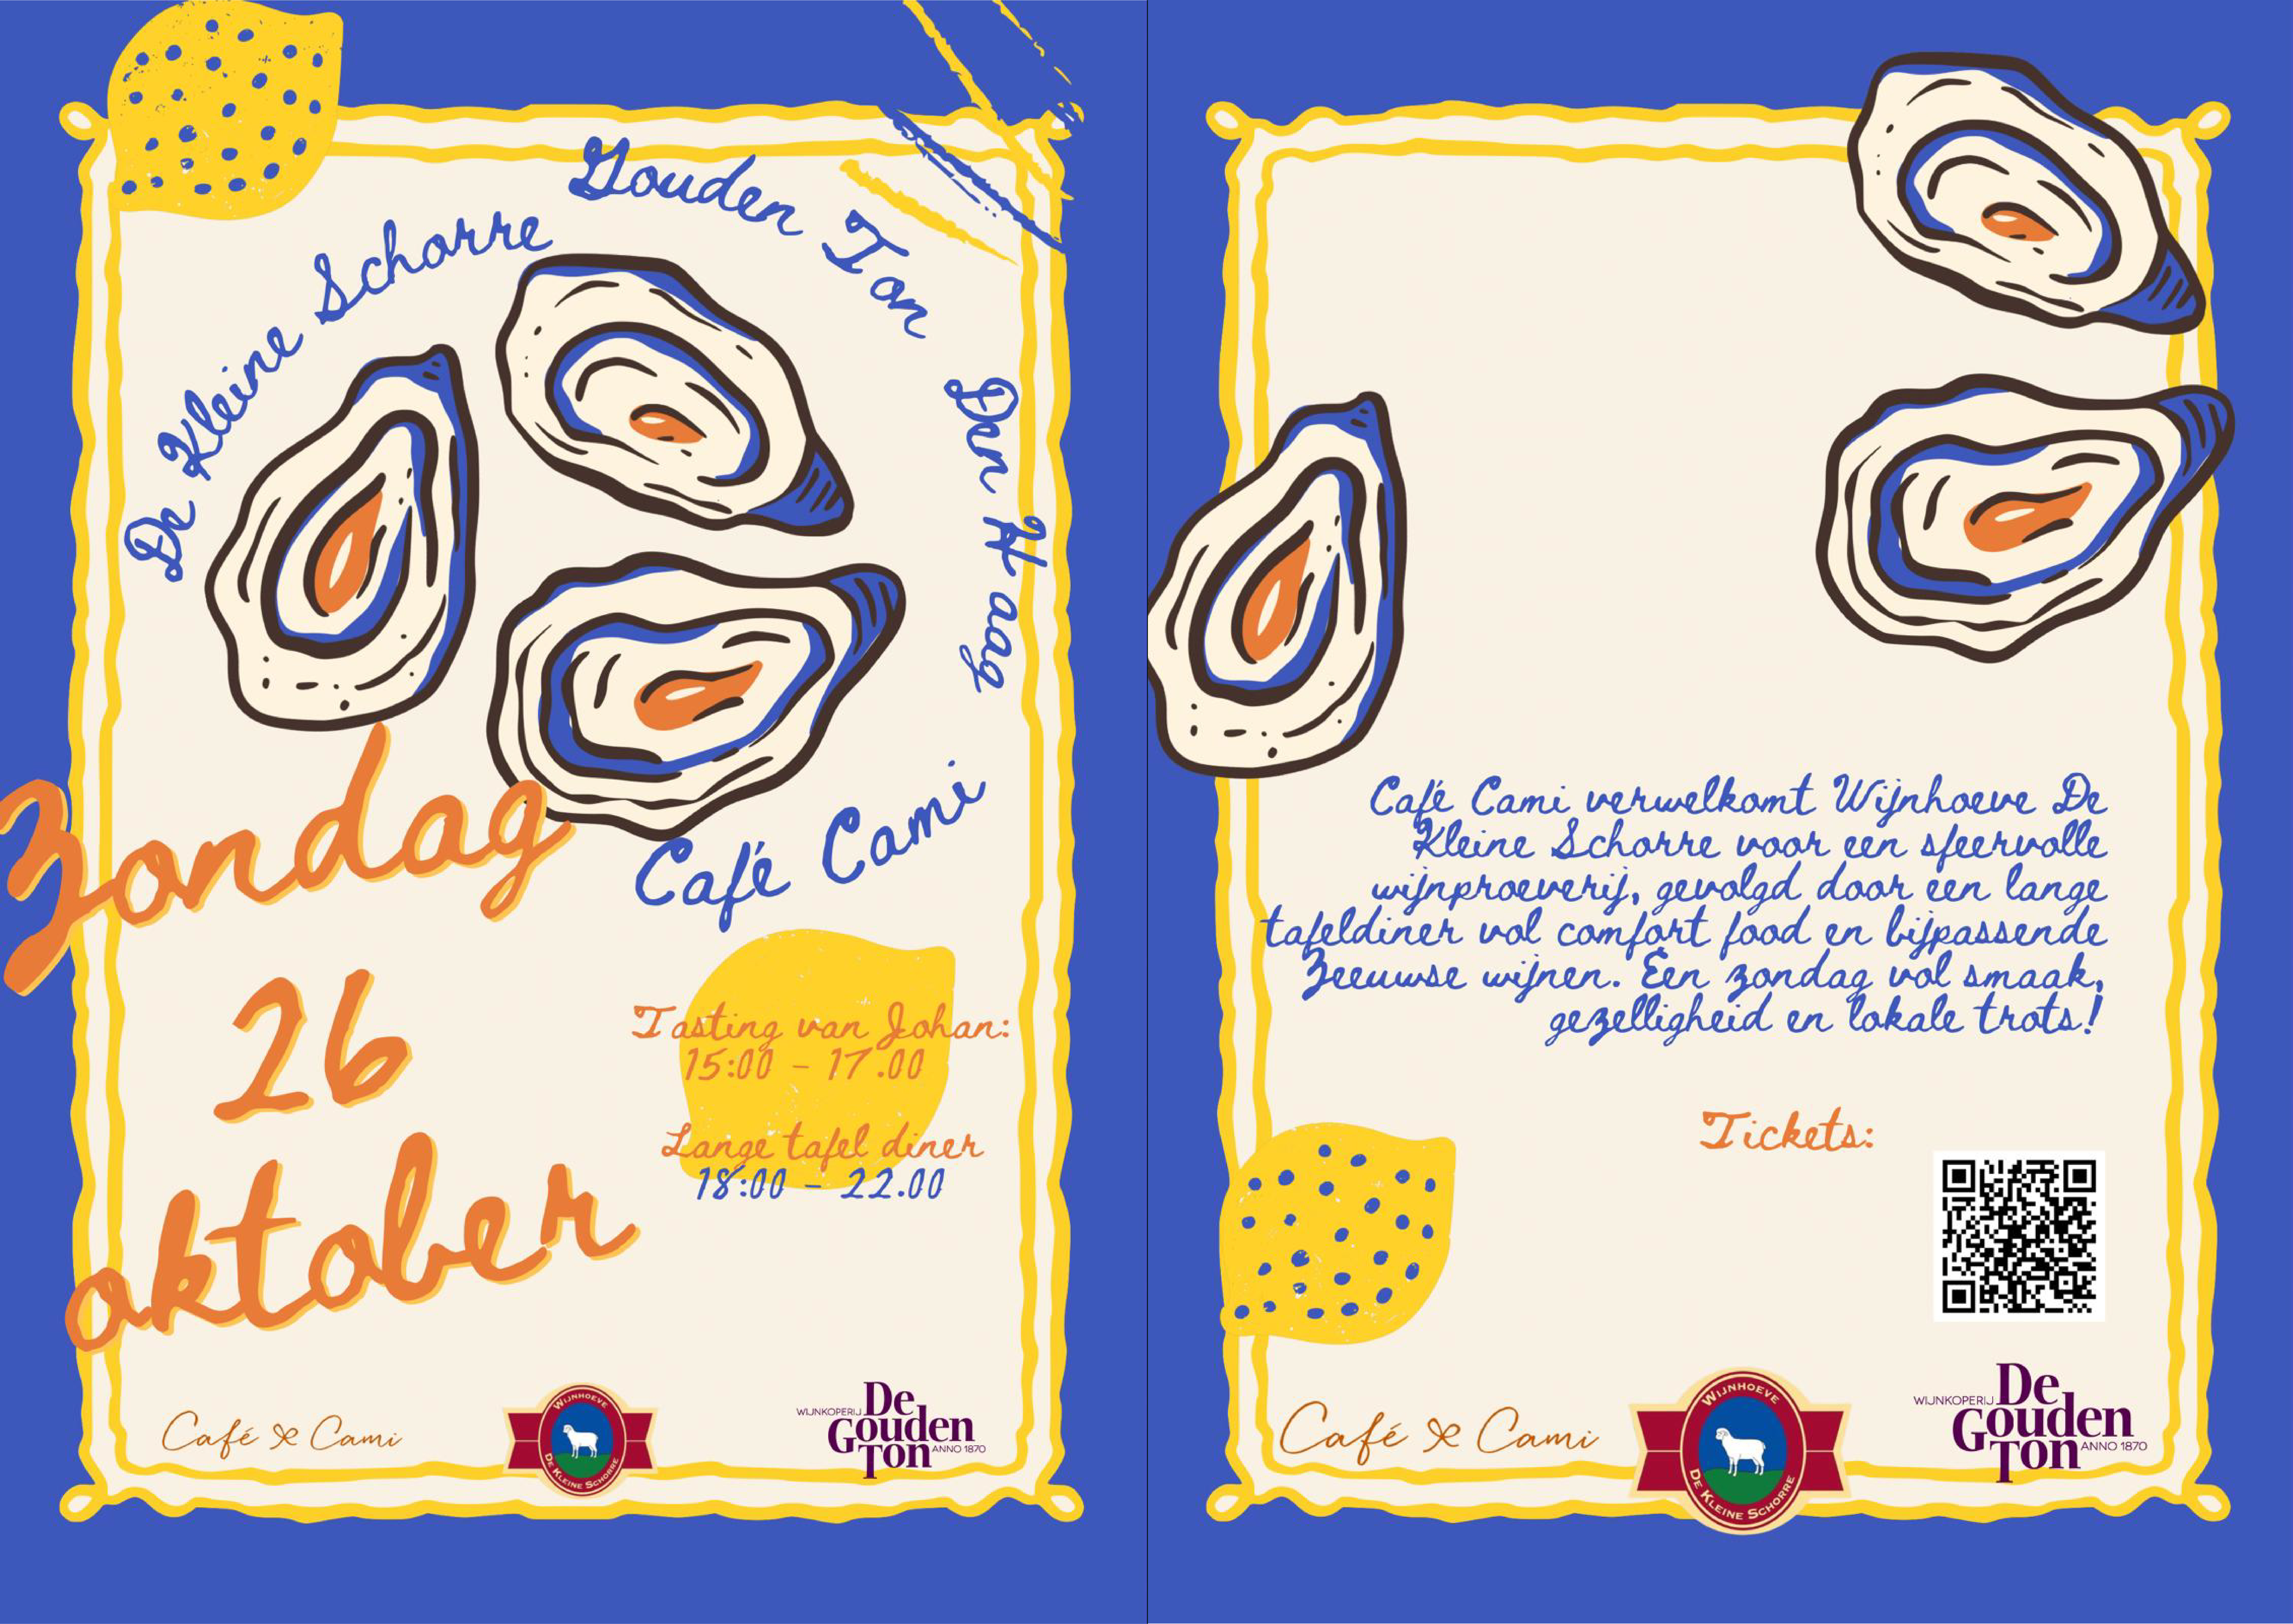 De Kleine Schorre
Gouden Ton
Den Haag
Café Cami
Zondag
26
oktober
Tasting van Johan:
15:00 - 17.00
Lange tafel diner
18:00 - 22.00
Café Cami
WIJNHOEVE
DE KLEINE SCHORRE
WIJNKOPERIJ De
Gouden
Ton ANNO 1870
Café Cami verwelkomt Wijnhoeve De
Kleine Schorre voor een sfeervolle
wijnproeverij, gevolgd door een lange
tafeldiner vol comfort food en bijpassende
Zeeuwse wijnen. Een zondag vol smaak,
gezelligheid en lokale trots!
Tickets:
Café Cami
WIJNHOEVE
DE KLEINE SCHORRE
WIJNKOPERIJ De
Gouden
Ton ANNO 1870